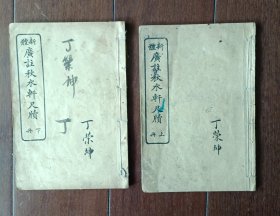 新體
廣註秋水軒尺牘
上冊
丁榮坤
新體
廣註秋水軒尺牘
下冊
丁榮坤
丁
丁榮坤